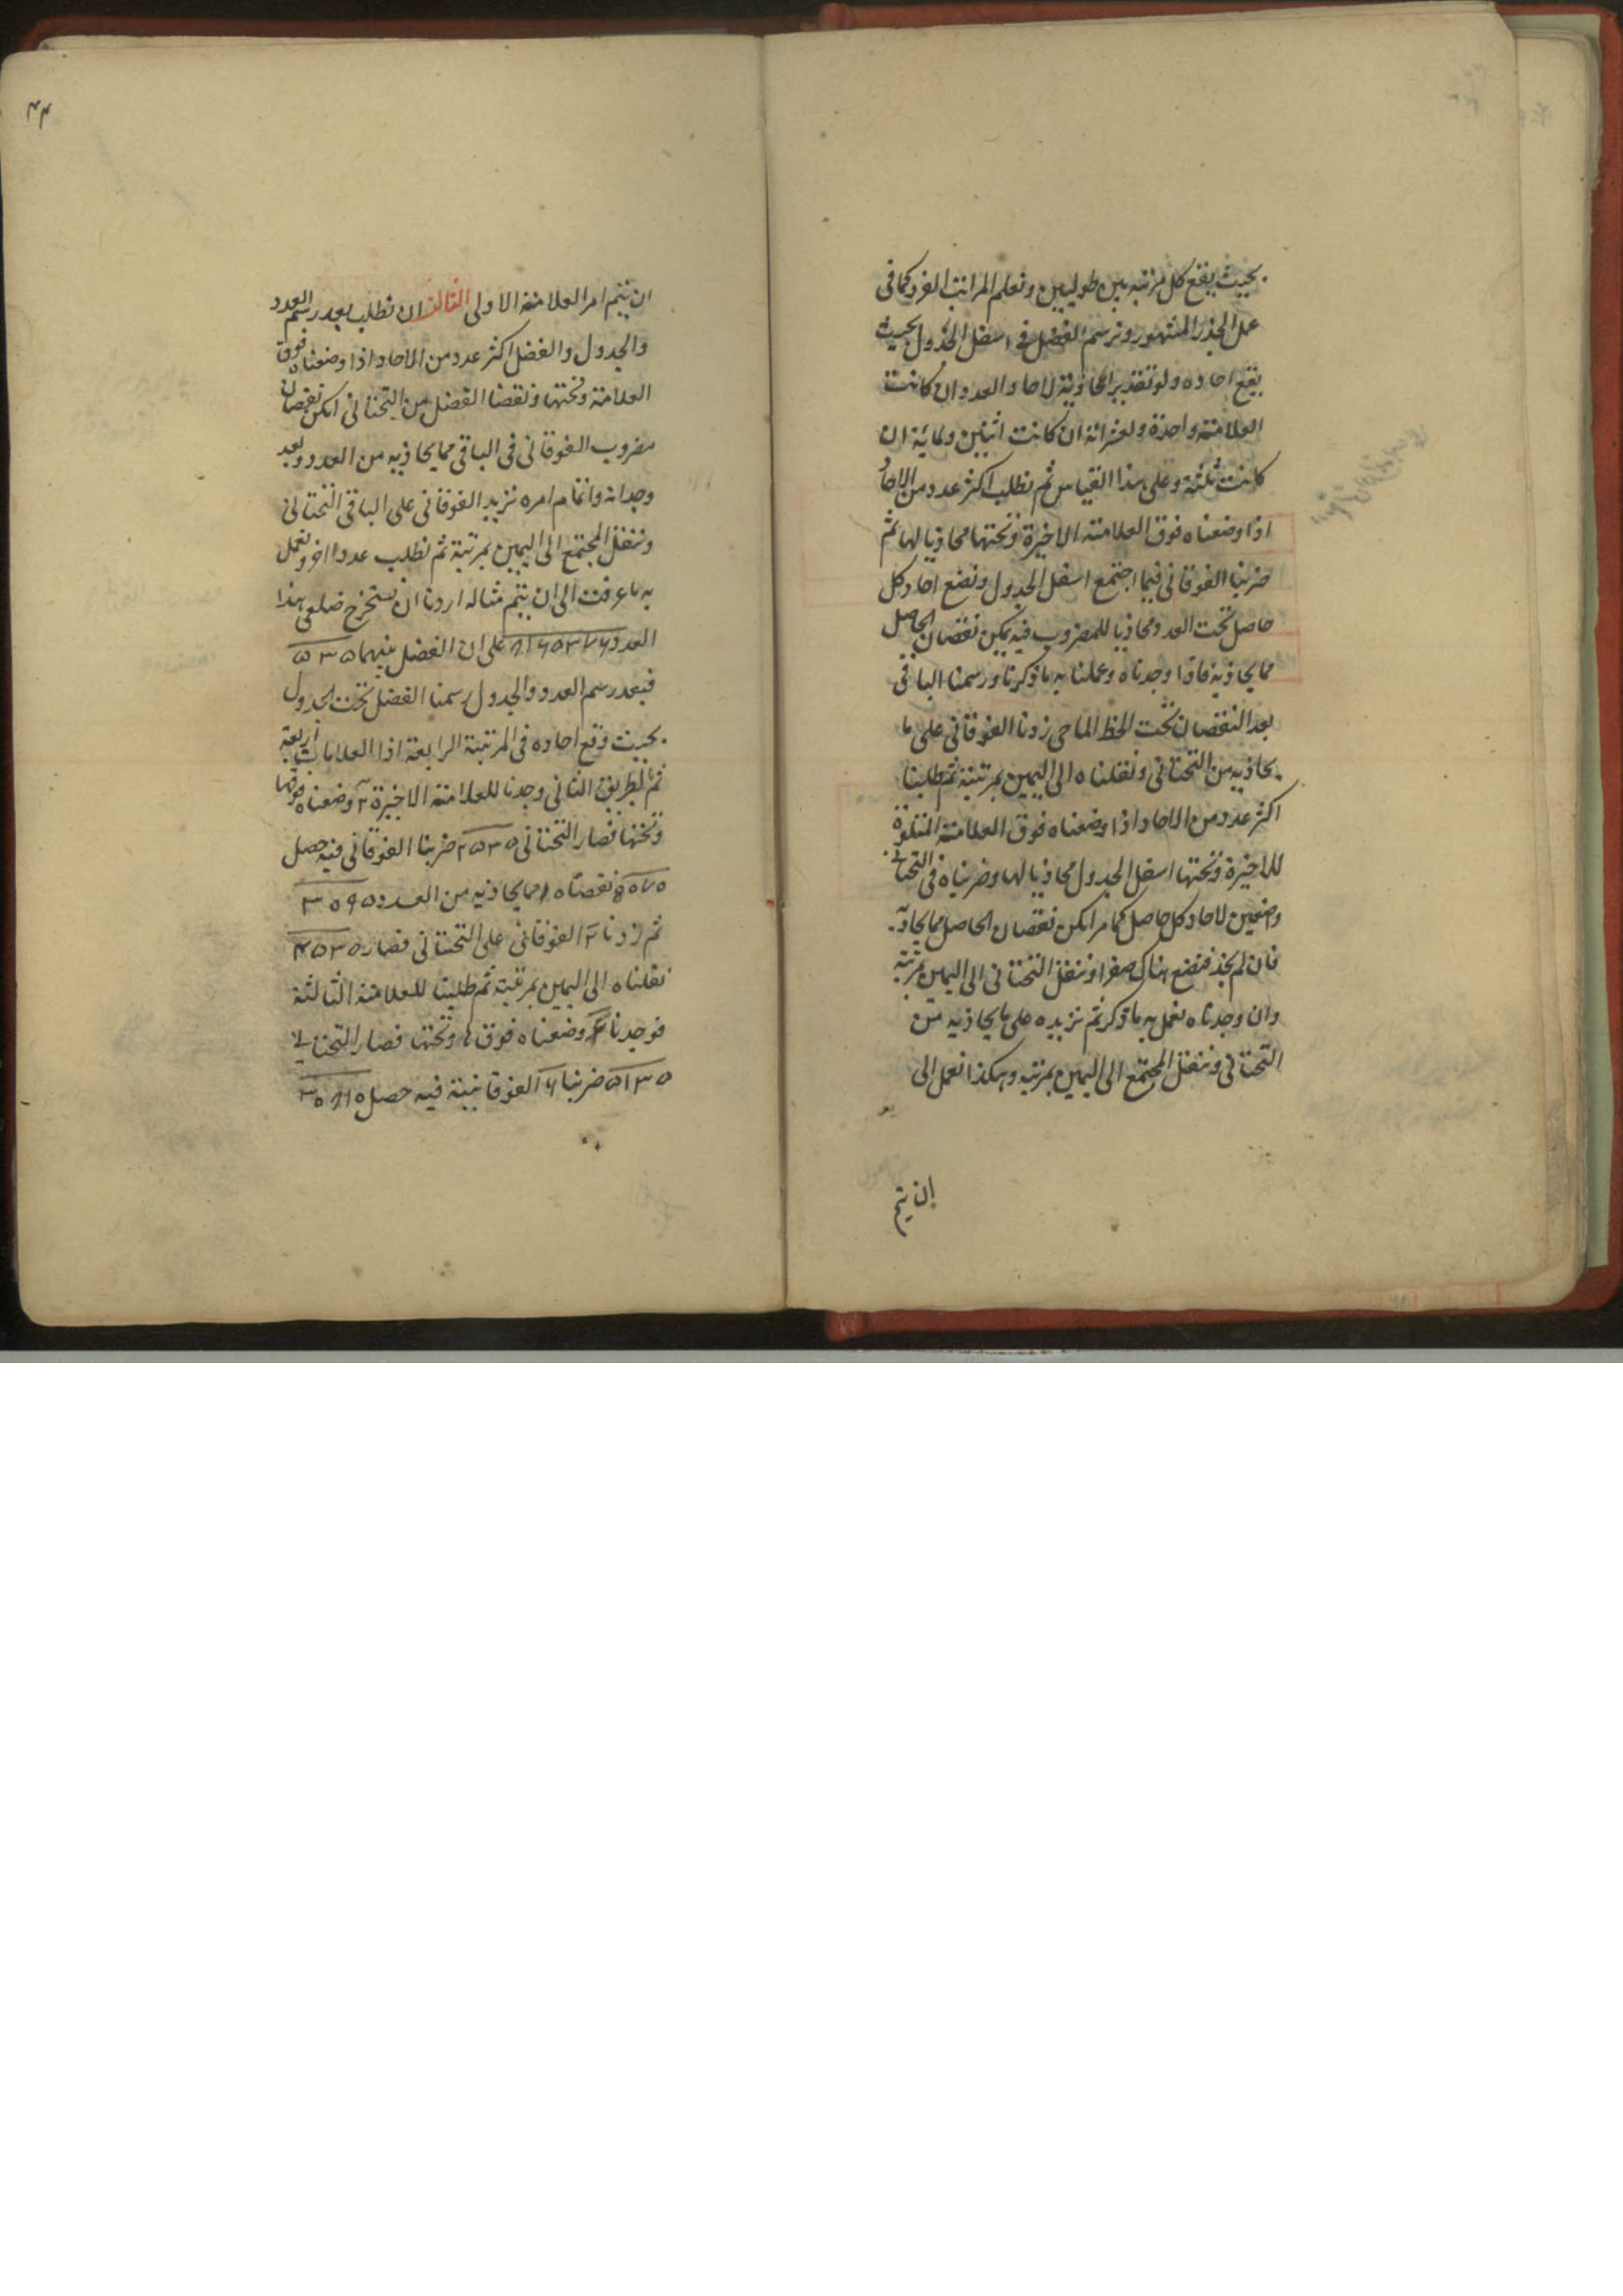 بحيث يقع كل مرتبه بين طوليين ونعلم المراتب الفرد كما في
عمل الجذر المشهور ونرسم الفضل في اسفل الجدول بحيث
يقع احاده ولو تقديرا محاذية لاحاد العدد ان كانت
العلامة واحدة ولعشراته ان كانت اثنين ولمائة ان
كانت ثلثة وعلى هذا القياس ثم نطلب اكثر عدد من الاحاد
اذا وضعناه فوق العلامة الاخيرة وتحتها محاذيا لها ثم
ضربنا الفوقاني فيما اجتمع اسفل الجدول ونضع احاد كل
حاصل تحت العدد محاذيا للمضروب فيه يمكن نقصان الحاصل
مما يحاذيه فاذا وجدناه وعملنا به ما ذكرنا ورسمنا الباقي
بعد النقصان تحت الخط الماحي زدنا الفوقاني على ما
يحاذيه من التحتاني ونقلناه الى اليمين بمرتبة ثم طلبنا
اكثر عدد من الاحاد اذا وضعناه فوق العلامة المتلوة
للاخيرة وتحتها اسفل الجدول محاذيا لها وضربناه في التحتاني
واضعين لاحاد كل حاصل كما مر امكن نقصان الحاصل مما يحاذيه
فان لم نجد فنضع هناك صفرا وننقل التحتاني الى اليمين بمرتبة
وان وجدناه نعمل به ما ذكر ثم نزيده على ما يحاذيه من
التحتاني وننقل المجتمع الى اليمين بمرتبه وهكذا نعمل الى
ان يتم
۴۴
ان يتم امر العلامة الاولى الثالث ان نطلب بعد رسم العدد
والجدول والفضل اكثر عدد من الاحاد اذا وضعناه فوق
العلامة وتحتها ونقصنا الفضل من التحتاني امكن نقصان
مضروب الفوقاني في الباقي مما يحاذيه من العدد وبعد
وجدانه واتمام امره نزيد الفوقاني على الباقي التحتاني
وننقل المجتمع الى اليمين بمرتبة ثم نطلب عددا اخر ونعمل
به ما عرفت الى ان يتم مثاله اردنا ان نستخرج ضلعي هذا
العدد على ان الفضل بينهما ۵۳۵
فبعد رسم العدد والجدول رسمنا الفضل تحت الجدول
بحيث وقع احاده في المرتبة الرابعة اذا العلامات اربعة
ثم بطريق الثاني وجدنا للعلامة الاخيرة ۲ وضعناه فوقها
وتحتها فصار التحتاني ۲۵۳۵ ضربنا الفوقاني فيه حصل
۵۰۷۰ نقصناه مما يحاذيه من العدد
ثم زدنا ۲ الفوقاني على التحتاني فصار ۴۵۳۵
نقلناه الى اليمين بمرتبة ثم طلبنا للعلامة الثالثة
فوجدنا ۶ وضعناه فوقها وتحتها فصار التحتاني
۵۱۳۵ ضربنا ۶ الفوقانية فيه حصل ۳۰۸۱۰